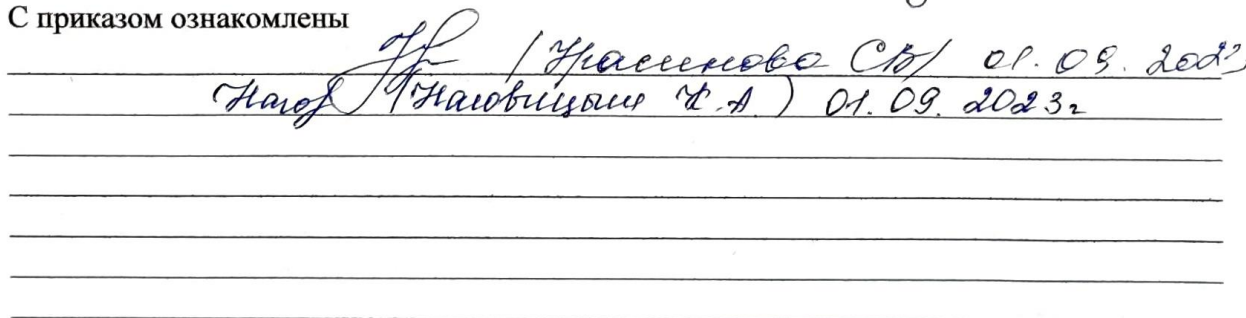 С приказом ознакомлены
/ СВ/ 01.09.2023
Нагов (Наговицына К.А.) 01.09.2023г